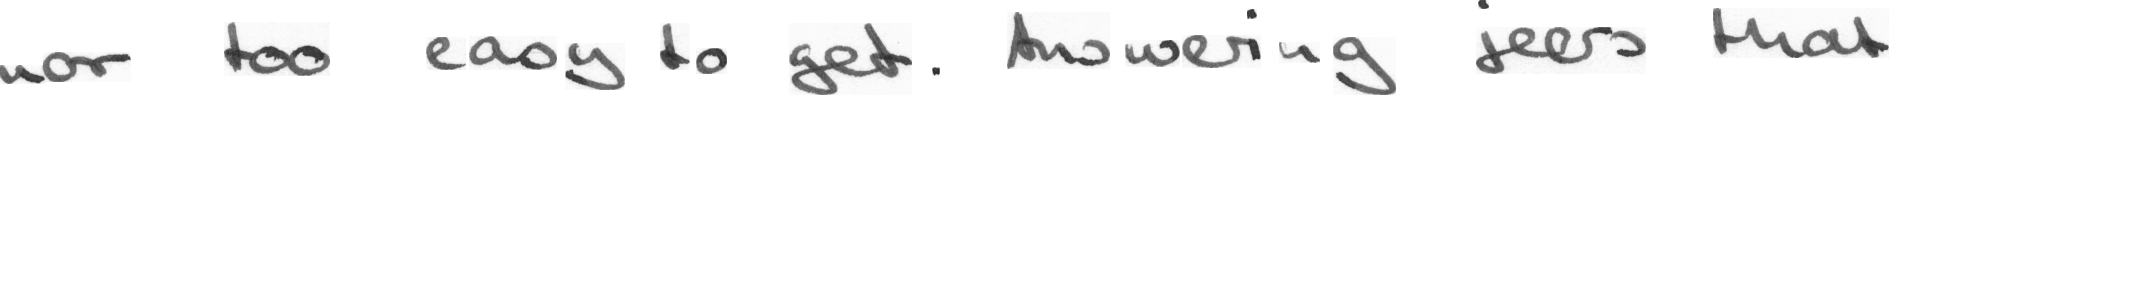 nor too easy to get. Answering jeers that